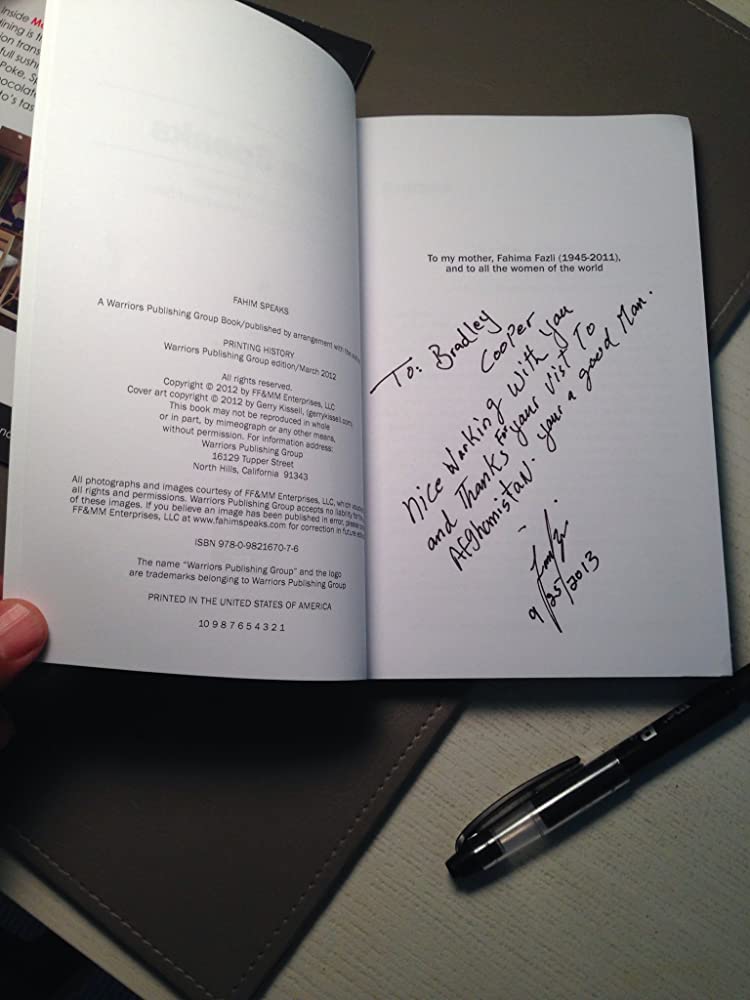 inside M
ining is t
ion trans
full sushi
Poke, S
ocolat
o's tas
FAHIM SPEAKS
A Warriors Publishing Group Book/published by arrangement with the
PRINTING HISTORY
Warriors Publishing Group edition/March 2012
All rights reserved.
Copyright © 2012 by FF&MM Enterprises, LLC
Cover art copyright © 2012 by Gerry Kissell, (gerrykissell.com)
This book may not be reproduced in whole
or in part, by mimeograph or any other means,
without permission. For information address:
Warriors Publishing Group
16129 Tupper Street
North Hills, California 91343
All photographs and images courtesy of FF&MM Enterprises, LLC, which
all rights and permissions. Warriors Publishing Group accepts no liability for
of these images. If you believe an image has been published in error, please
FF&MM Enterprises, LLC at www.fahimspeaks.com for correction in future
ISBN 978-0-9821670-7-6
The name "Warriors Publishing Group" and the logo
are trademarks belonging to Warriors Publishing Group
PRINTED IN THE UNITED STATES OF AMERICA
10 9 8 7 6 5 4 3 2 1
To my mother, Fahima Fazli (1945-2011),
and to all the women of the world
To: Bradley
Cooper
Nice Working With you
and Thanks For your visit To
Afghanistan. your a good Man.
9/25/2013